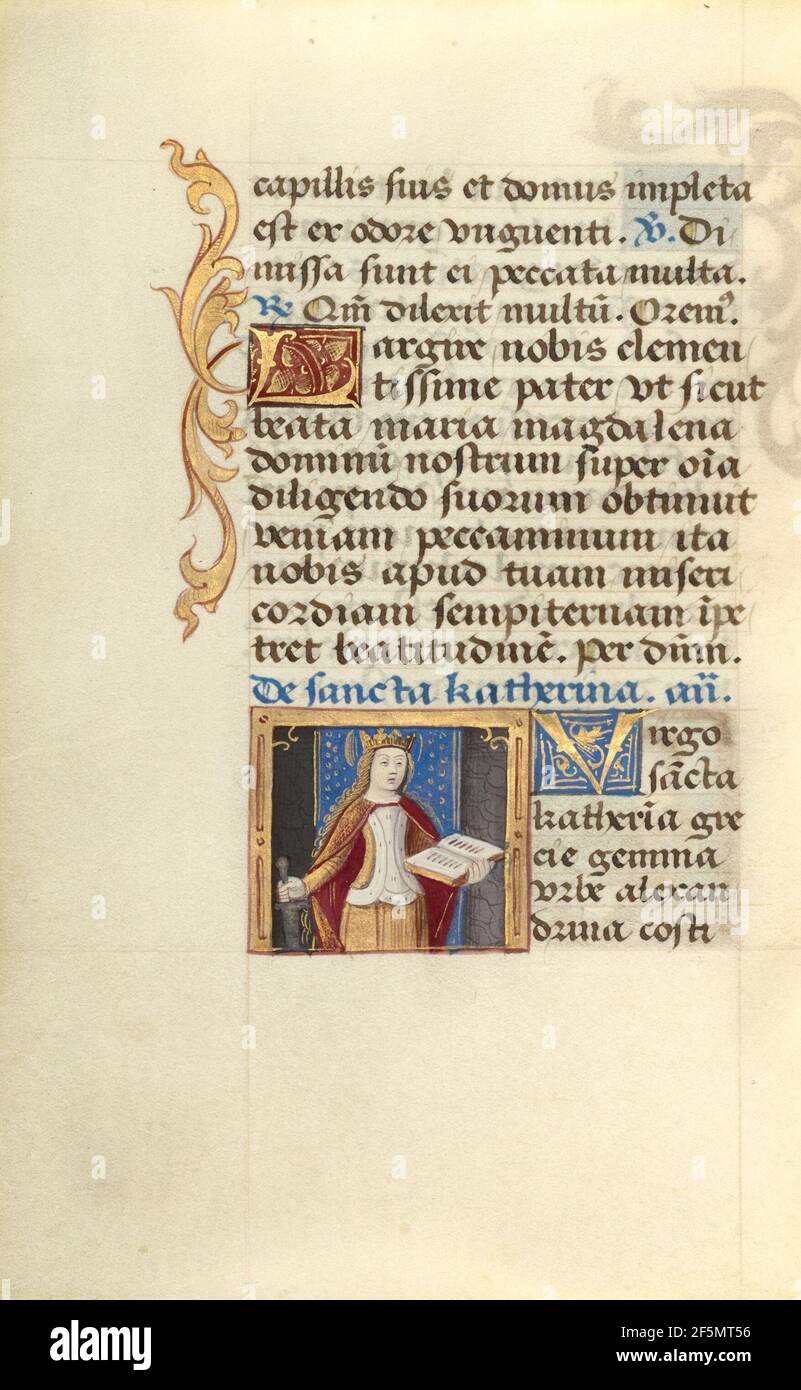 capillis suis et domus impleta
est ex odore vnguenti. V. Di
missa sunt ei peccata multa.
R Qm̄ dilexit multū. Orem⁹.
Largire nobis clemen
tissime pater vt sicut
beata maria magdalena
dominū nostrum super oīa
diligendo suorum obtinuit
veniam peccaminum ita
nobis apud tuam miseri
cordiam sempiternam īpe
tret beatitudinē. Per dn̄m.
De sancta katherina. añ.
Virgo
sācta
katherīa gre
cie gemma
vrbe alexan
drina costi
a alamy
Image ID: 2F5MT56
www.alamy.com